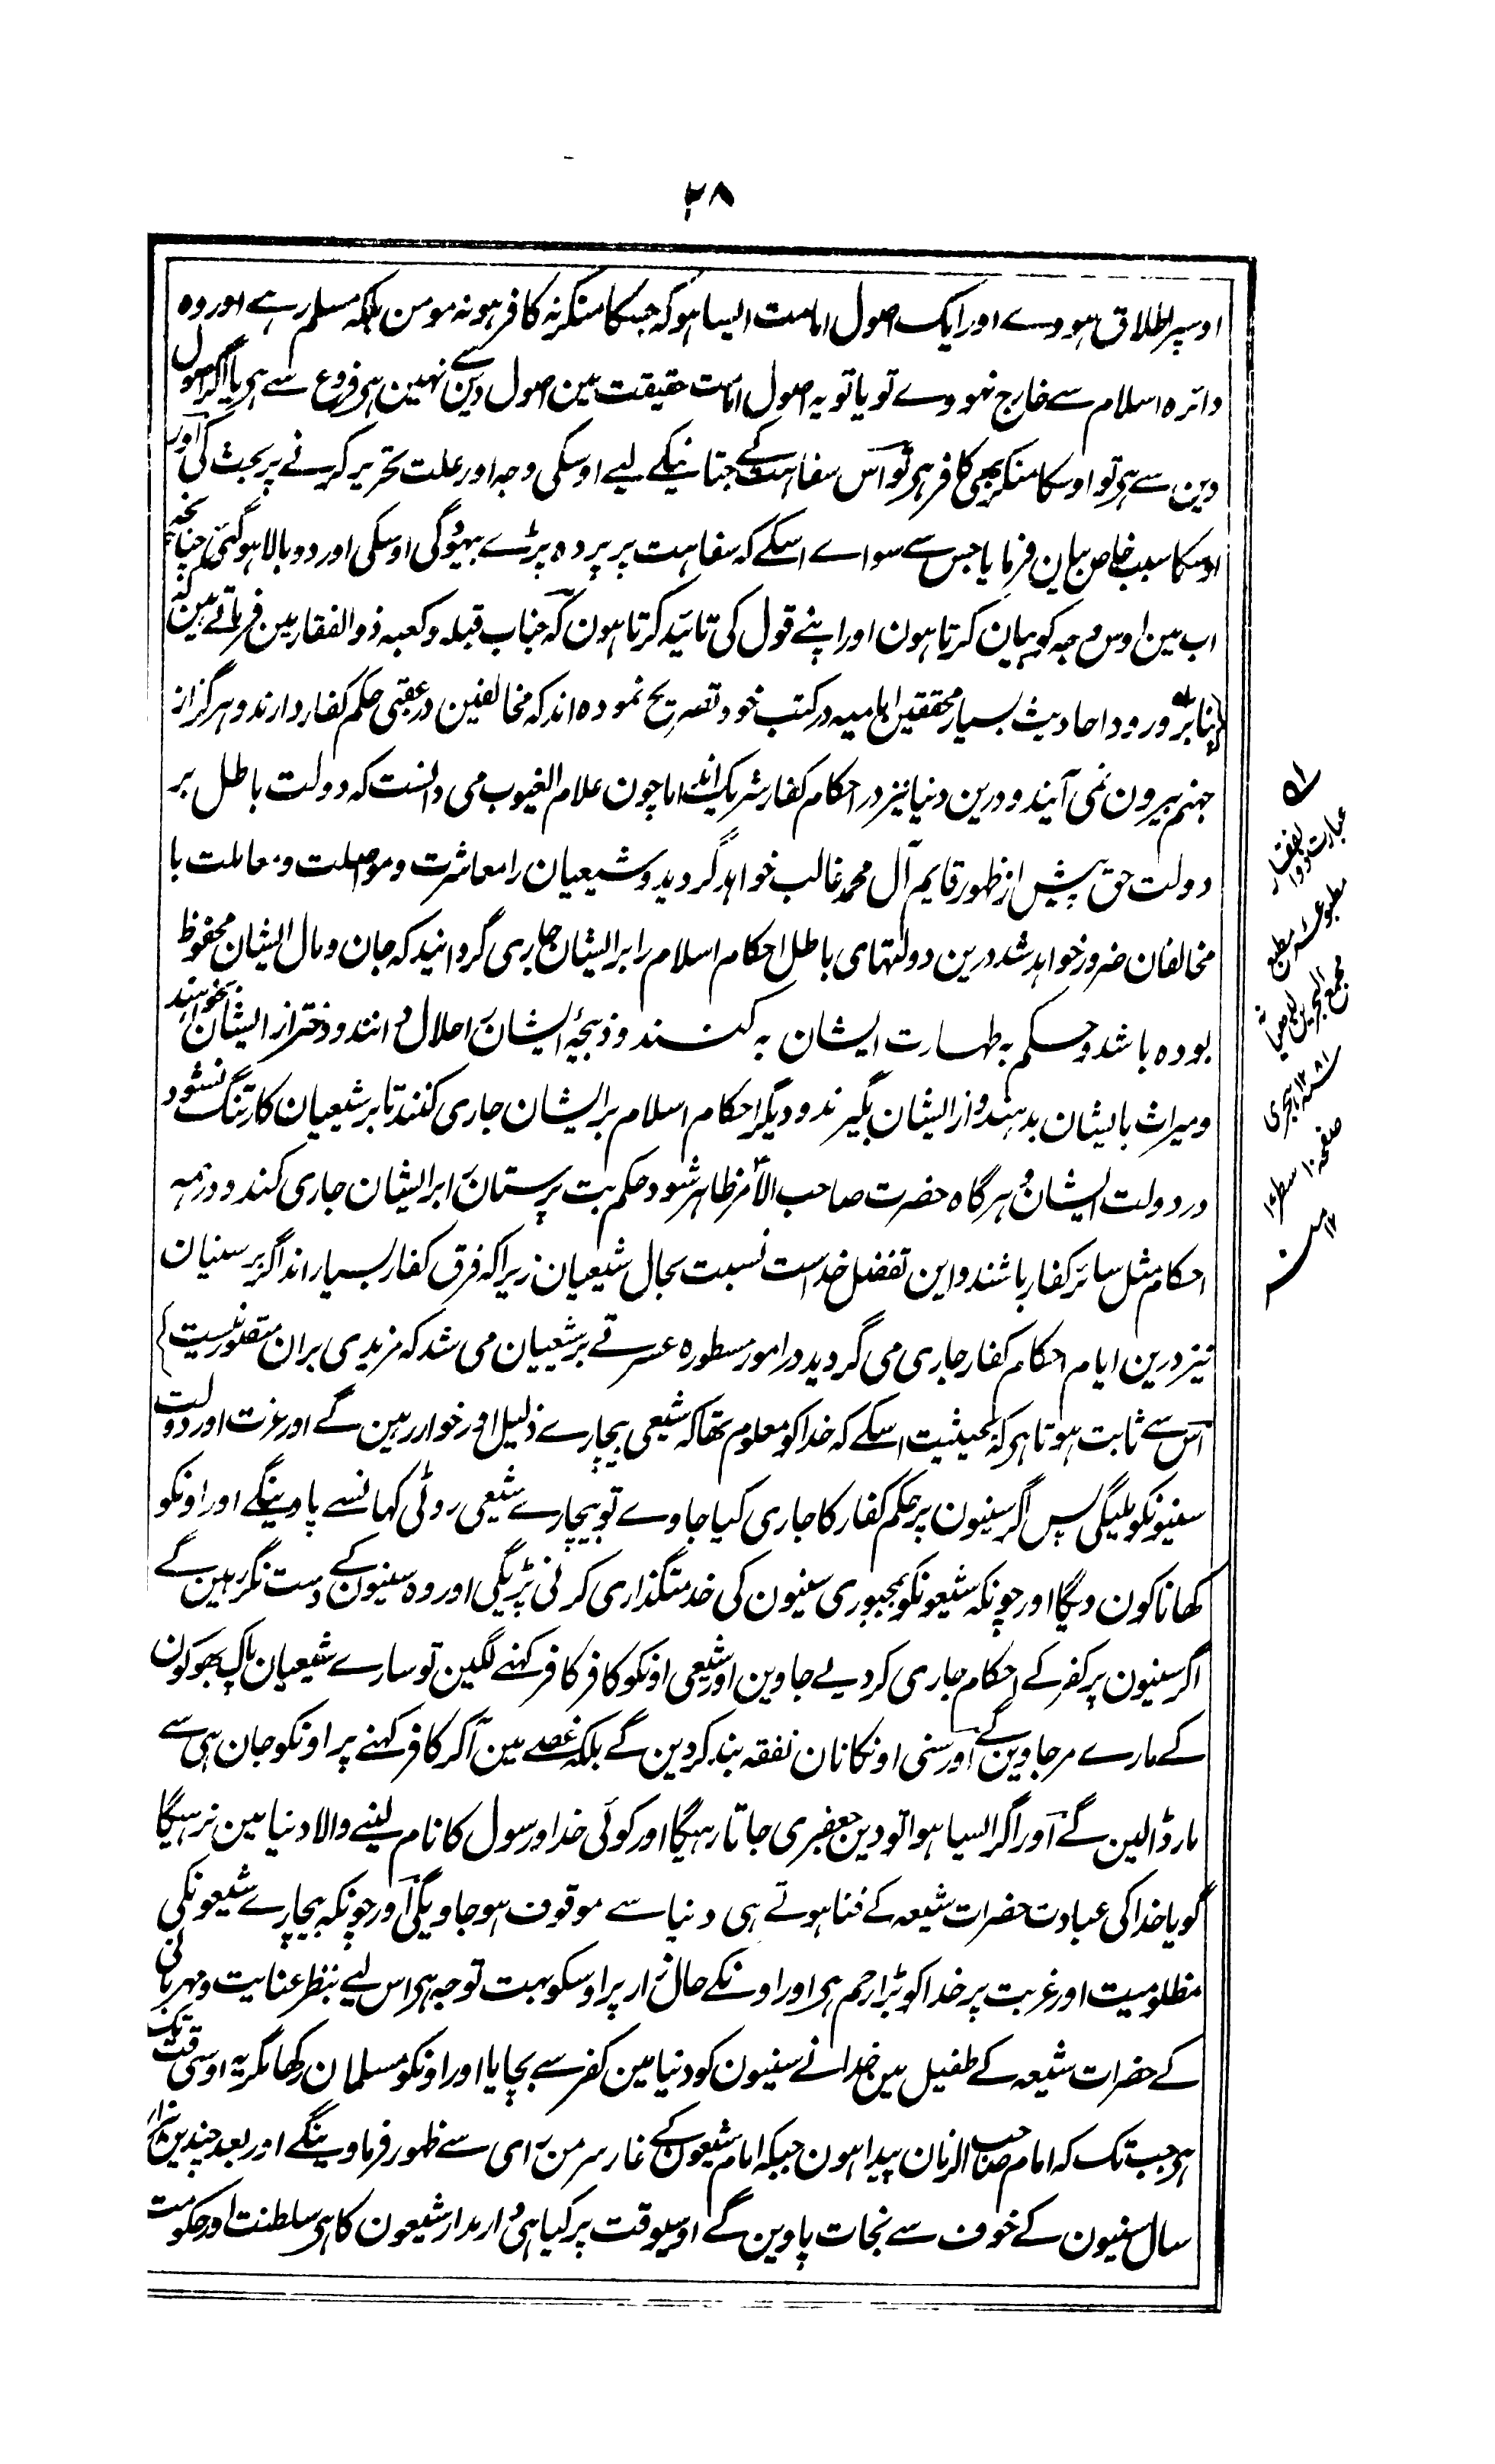 ۲۸
اوسپر اطلاق ہووے اور ایک اصول امامت ایسا ہو کہ جسکا منکر نہ کافر ہو نہ مومن بلکہ مسلم رہے اور وہ
دائرہ اسلام سے خارج نہووے تو یا تو یہ اصول امامت حقیقت مین اصول دین سے نہین ہی فروع سے ہی یا اگر اصول
دین سے ہی تو اوسکا منکر بھی کافر ہی تو اس سفاہت کے جتانیکے لیے اوسکی وجہ اور علت تحریر کرنے پر بحث کی اور
اوسکا سبب خاص بیان فرمایا جس سے سواے اسکے کہ سفاہت پر پردہ پڑے بیہودگی اوسکی اور دوبالا ہو گئی چنانچہ
اب مین اوس وجہ کو بیان کرتا ہون اور اپنے قول کی تائید کرتا ہون کہ جناب قبلہ و کعبہ ذوالفقار مین فرماتے ہین کہ
(بنا بر ورود احادیث بسیار محققین امامیہ در کتب خود تصریح نمودہ اند کہ مخالفین در عقبیٰ حکم کفار دارند و ہرگز از
جہنم بیرون نمی آیند و درین دنیا نیز در احکام کفار شریک اند اما چون علام الغیوب می دانست کہ دولت باطل بر
دولت حق پیش از ظہور قایم آل محمد غالب خواہد گردید و شیعیان را معاشرت و مواصلت و معاملت با
مخالفان ضرور خواہد شد درین دولتہای باطل احکام اسلام را بر ایشان جاری گردانید کہ جان و مال ایشان محفوظ
بودہ باشد و حکم بہ طہارت ایشان بہ کنند و ذبیحۂ ایشان را حلال دانند و دختر از ایشان بخواہند
و میراث بایشان بدہند و از ایشان بگیرند و دیگر احکام اسلام بر ایشان جاری کنند تا بر شیعیان کار تنگ نشود
در دولت ایشان و ہرگاہ حضرت صاحب الامر ظاہر شود حکم بت پرستان را بر ایشان جاری کند و در ہمہ
احکام مثل سائر کفار باشند و این تفضل خداست نسبت بحال شیعیان زیرا کہ فرق کفار بسیار اند اگر بر سنیان
نیز درین ایام احکام کفار جاری می گردید در امور مسطورہ عسرتے بر شیعیان می شد کہ مزیدی بران متصور نیست)
اس سے ثابت ہوتا ہی کہ بحیثیت اسکے کہ خدا کو معلوم تھا کہ شیعی بیچارے ذلیل اور خوار رہین گے اور عزت اور دولت
سنیونکو ملیگی پس اگر سنیون پر حکم کفار کا جاری کیا جاوے تو بیچارے شیعی روٹی کہانسے پاوینگے اور اونکو
کھانا کون دیگا اور چونکہ شیعونکو بمجبوری سنیون کی خدمتگذاری کرنی پڑیگی اور وہ سنیون کے دست نگر رہین گے
اگر سنیون پر کفر کے احکام جاری کر دیے جاوین اور شیعی اونکو کافر کافر کہنے لگین تو سارے شیعیان پاک بھوکون
کے مارے مر جاوین گے اور سنی اونکا نان نفقہ بند کر دین گے بلکہ غصے مین آکر کافر کہنے پر اونکو جان ہی سے
مار ڈالین گے اور اگر ایسا ہوا تو دین جعفری جاتا رہیگا اور کوئی خدا و رسول کا نام لینے والا دنیا مین نرہیگا
گویا خدا کی عبادت حضرات شیعہ کے فنا ہوتے ہی دنیا سے موقوف ہو جاویگی اور چونکہ بیچارے شیعونکی
مظلومیت اور غربت پر خدا کو بڑا رحم ہی اور اونکے حال زار پر اوسکو بہت توجہ ہی اس لیے بنظر عنایت و مہربانی
کے حضرات شیعہ کے طفیل مین خدا نے سنیون کو دنیا مین کفر سے بچایا اور اونکو مسلمان رکھا مگر یہ اوسی وقت تک
ہی جب تک کہ امام صاحب الزمان پیدا ہون جبکہ امام شیعون کے غار سرمن رای سے ظہور فرماوینگے اور بعد چندین ہزار
سال سنیون کے خوف سے نجات پاوین گے اوسوقت پر کیا ہی دارمدار شیعون کا ہی سلطنت اور حکومت
عبارت ذوالفقار
مطبوعہ مطبع
مجمع البحرین لودھیانہ
سنہ ۱۲۸۱ ہجری
صفحہ ۱۰ سطر ۱۵
۱۲ منہ